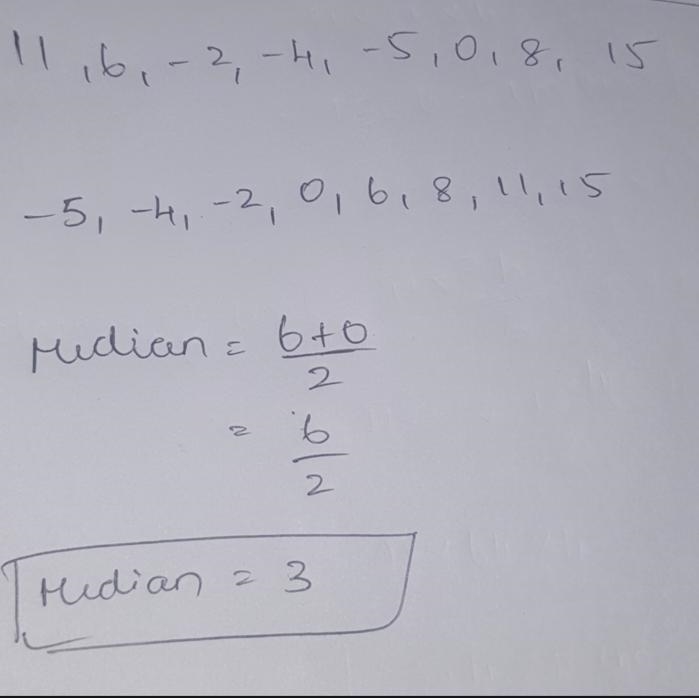 11, 6, -2, -4, -5, 0, 8, 15
-5, -4, -2, 0, 6, 8, 11, 15
Median = 6+0/2
= 6/2
Median = 3